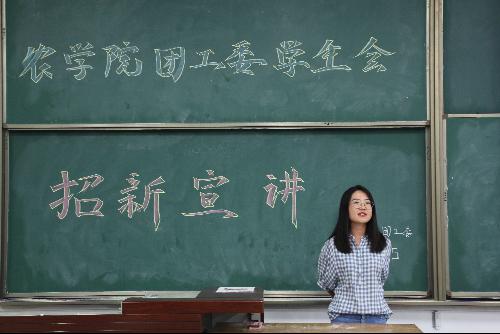 农学院团工委学生会
招新宣讲
团工委